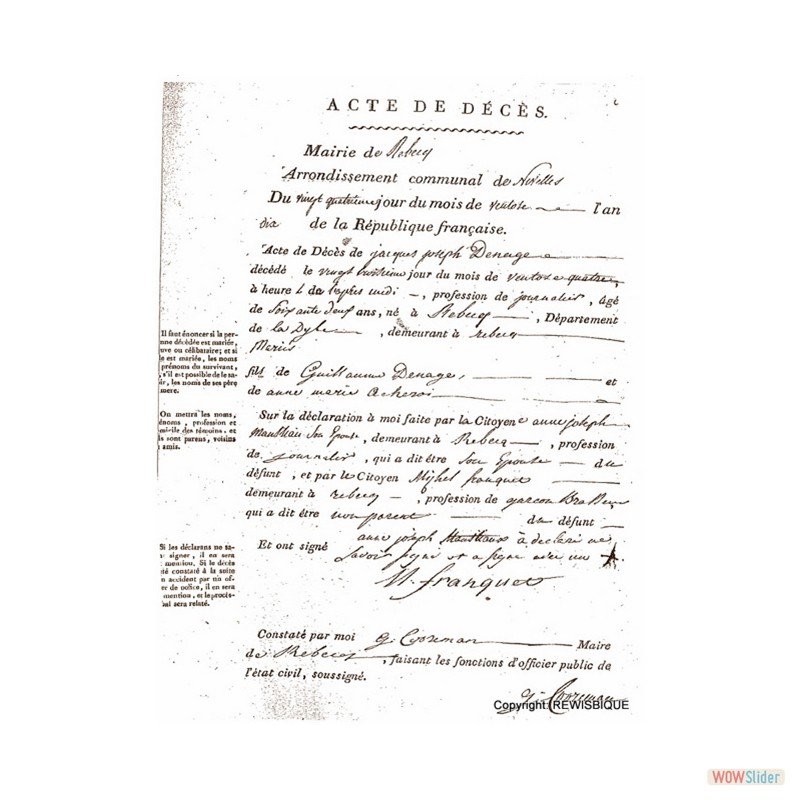 ACTE DE DÉCÈS.
Mairie de Rebecq
Arrondissement communal de Nivelles
Du vingt quatrieme jour du mois de ventose l'an
dix de la République française.
Acte de Décès de jacques joseph Denage
décédé le vingt jour du mois de ventose a quatre
à heure apres midi, profession de journalier, âgé
de Soixante deux ans, né à Rebecq, Département
de la Dyle, demeurant à rebecq
Mariés
fils de Guillaume Denage, et
de anne marie
Sur la déclaration à moi faite par la Citoyenne anne joseph
Son Epouse, demeurant à Rebecq, profession
de journalier, qui a dit être Son Epouse du
défunt, et par le Citoyen Mighel franquet
demeurant à rebecq, profession de garcon Brasseur
qui a dit être non parent du défunt
Et ont signé anne joseph à declaré ne
Savoir signé et a signé avec un +
M. franquet
Constaté par moi g. Cooreman Maire
de Rebecq, faisant les fonctions d'officier public de
l'état civil, soussigné.
g. Cooreman
Il faut énoncer si la per-
nne décédée est mariée,
uve ou célibataire; et si
le est mariée, les noms
prénoms du survivant,
s'il est possible de le sa-
ir, les noms de ses père
mere.
On mettra les noms,
énoms, profession et
micile des témoins, et
ls sont parens, voisins
amis.
Si les déclarans ne sa-
signer, il en sera
mention. Si le décès
été constaté à la suite
n accident par un off-
er de police, il en sera
mention, et le procès-
bal sera relaté.
Copyright (REWISBIQUE
WOWSlider